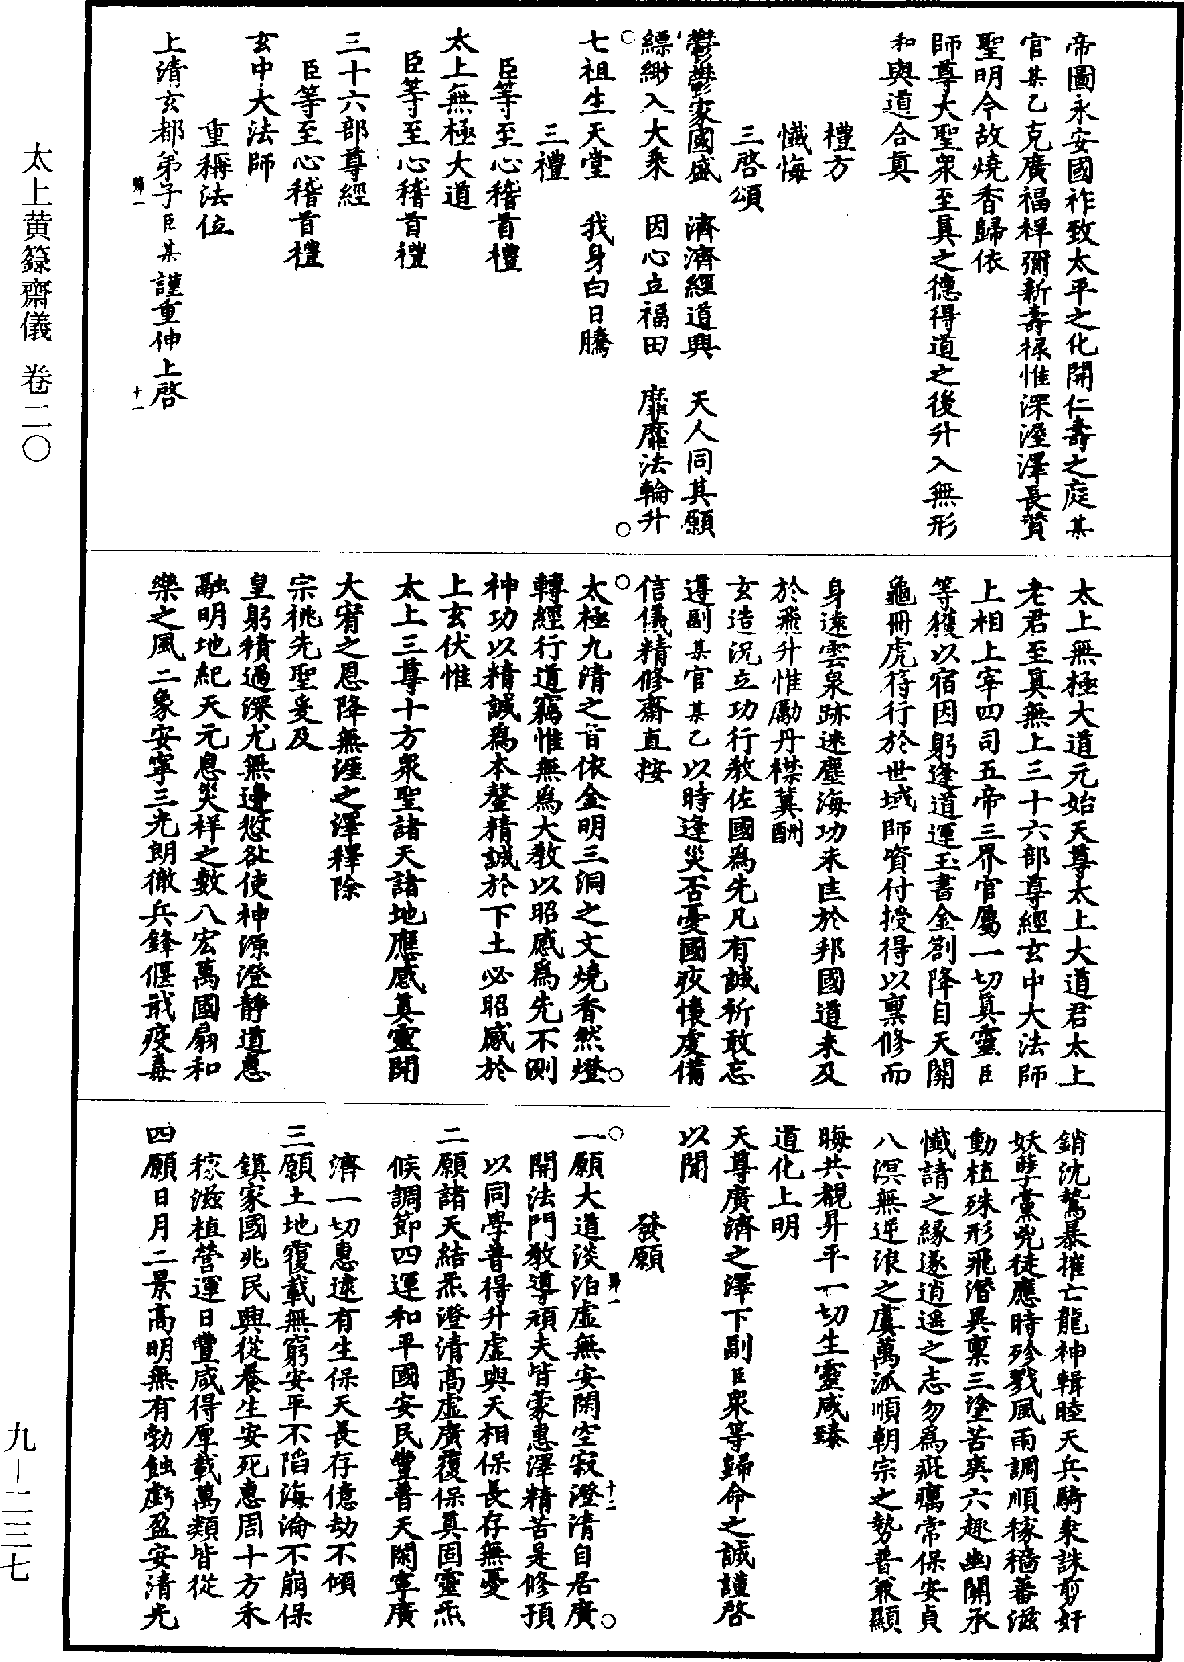 太上黄籙齋儀 卷二〇
九—二三七
帝圖永安國祚致太平之化開仁壽之庭某
官某乙克廣福祥彌新壽祿惟深溼澤長贊
聖明今故燒香歸依
師尊大聖衆至真之德得道之後升入無形
和與道合真
禮方
懺悔
三啓頌
鬱鬱家國盛 濟濟經道興 天人同其願
縹緲入大乘 因心立福田 靡靡法輪升
七祖生天堂 我身白日騰
三禮
臣等至心稽首禮
太上無極大道
臣等至心稽首禮
三十六部尊經
臣等至心稽首禮
玄中大法師
重稱法位
上清玄都弟子臣某謹重伸上啓
歸一 十一
太上無極大道元始天尊太上大道君太上
老君至真無上三十六部尊經玄中大法師
上相上宰四司五帝三界官屬一切真靈臣
等獲以宿因躬逢道運玉書金劄降自天關
龜冊虎符行於世域師資付授得以稟修而
身遠雲泉跡迷塵海功未匡於邦國道未及
於飛升惟勵丹襟冀酬
玄造況立功行教佐國爲先凡有誠祈敢忘
遵副某官某乙以時逢災否憂國疚懷虔備
信儀精修齋直按
太極九清之旨依金明三洞之文燒香然燈
轉經行道竊惟無爲大教以昭感爲先不測
神功以精誠爲本罄精誠於下土必昭感於
上玄伏惟
太上三尊十方衆聖諸天諸地應感真靈開
大宥之恩降無涯之澤釋除
宗祧先聖爰及
皇躬積過深尤無邊愆咎使神源澄靜道惠
融明地紀天元息災祥之數八宏萬國扇和
樂之風二象安寧三光朗徹兵鋒偃戢疫毒
銷沈驁暴摧亡龍神輯睦天兵騎衆誅剪奸
妖孽黨兇徒應時殄戮風雨調順稼穡蕃滋
動植殊形飛潛異稟三塗苦爽六趣幽關承
懺請之緣遂逍遥之志勿爲疵癘常保安貞
八溟無逆浪之虞萬派順朝宗之勢普兼顯
晦共覩昇平一切生靈咸臻
道化上明
天尊廣濟之澤下副臣衆等歸命之誠謹啓
以聞
發願
一願大道淡泊虛無安閑空寂澄清自居廣
開法門教導頑夫皆蒙惠澤精苦是修預
歸一 十二
以同學普得升虛與天相保長存無憂
二願諸天結炁澄清高虛廣覆保真固靈炁
候調節四運和平國安民豐普天閑寧廣
濟一切惠逮有生保天長存億劫不傾
三願土地覆載無窮安平不陷海淪不崩保
鎮家國兆民興從養生安死惠周十方禾
稼滋植營運日豐咸得厚載萬類皆從
四願日月二景高明無有勃蝕虧盈安清光